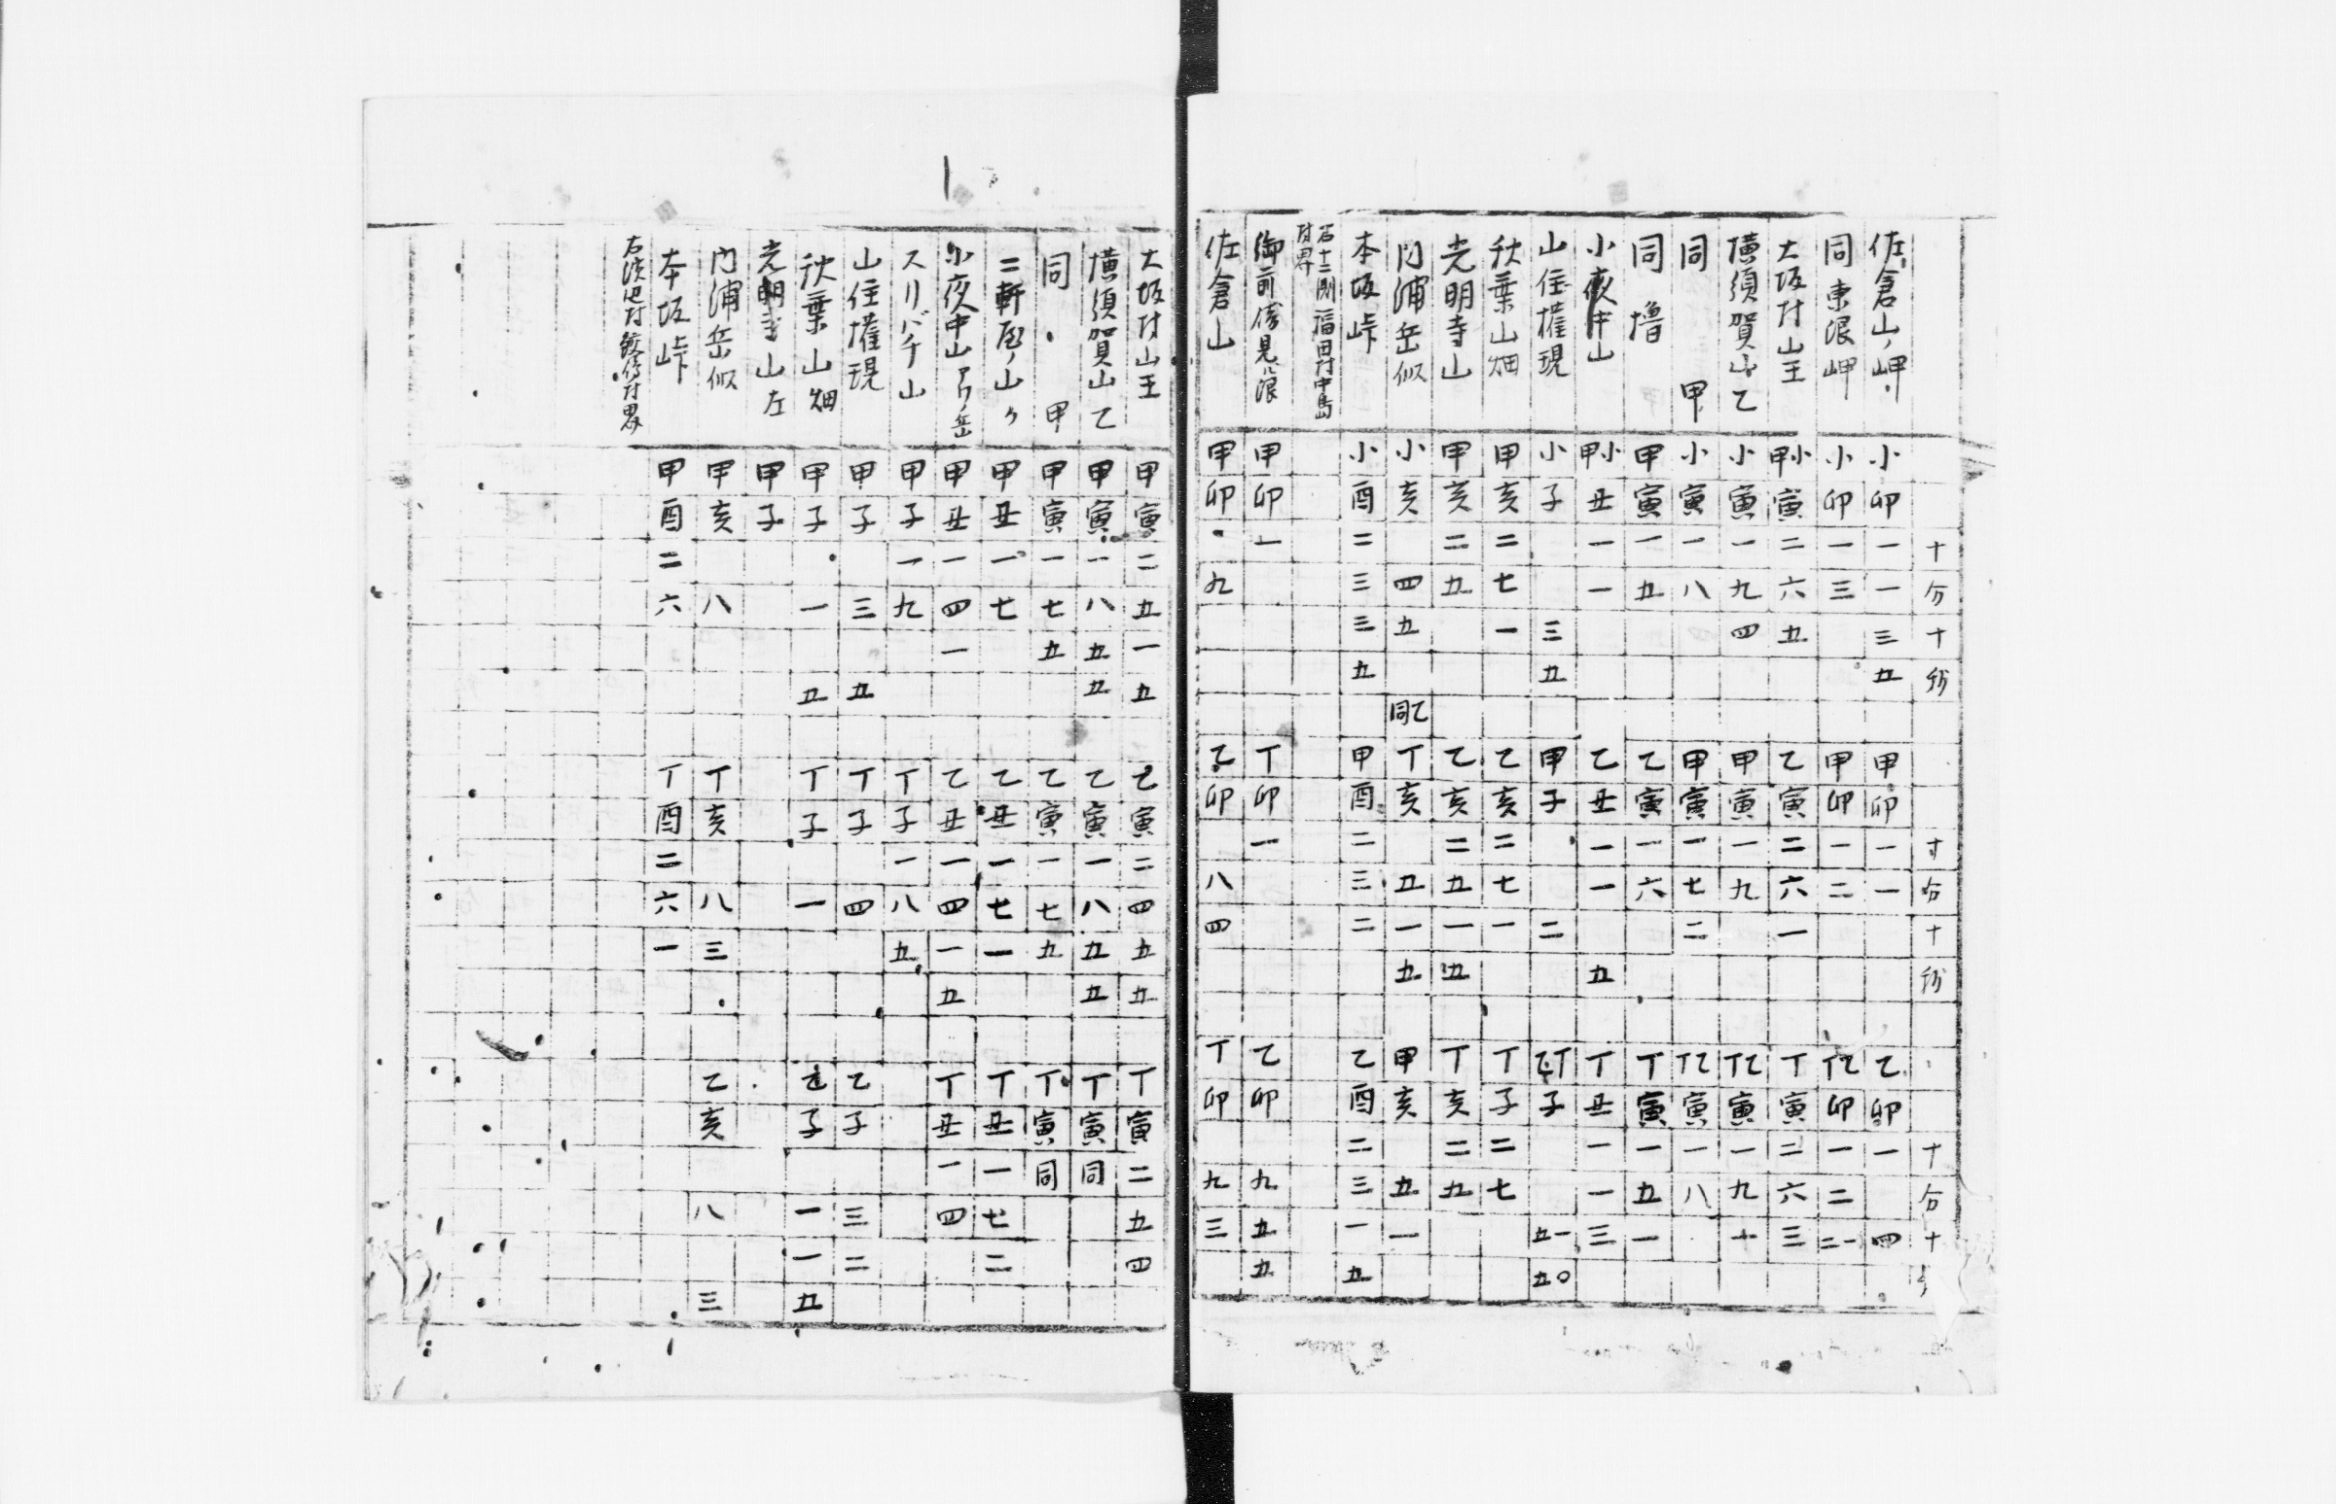 十分十秒 寸分十秒 十分十
佐倉山ノ岬 小卯一一三五 甲卯一一 乙卯一 四
同東浪岬 小卯一三 甲卯一二 丁乙卯一二二一
大坂村山王 甲小寅二六五 乙寅二六一 丁寅二六三
横須賀山乙 小寅一九四 甲寅一九 丁乙寅一九十
同 甲 小寅一八 甲寅一七二 丁乙寅一八
同 撸 甲寅一五 乙寅一六 丁寅一五一
小夜中山 甲小丑一一 乙丑一一 五 丁丑一一三
山住権現 小子 三五 甲子 二 乙丁子 五一五〇
秋葉山畑 甲亥二七一 乙亥二七一 丁子二七
光明寺山 甲亥二五 乙亥二五一五 丁亥二五
門浦岳似 小亥 四五 同乙 丁亥 五一五 甲亥 五一
本坂峠 小酉二三三五 甲酉二三二 乙酉二三一五
右十二測 福田村中島村界
御前傍見ハ浪 甲卯一 丁卯一 乙卯 九五五
佐倉山 甲卯 九 乙卯 八四 丁卯 九三
大坂村山王 甲寅二五一五 乙寅二四五五 丁寅二五四
横須賀山乙 甲寅一八五五 乙寅一八五五 丁寅同
同 甲 甲寅一七五 乙寅一七五 丁寅同
二軒屋ノ山ヶ 甲丑一七 乙丑一七一 丁丑一七二
小夜中山アワヽ岳 甲丑一四一 乙丑一四一五 丁丑一四
スリバチ山 甲子一九 丁子一八五
山住権現 甲子 三 五 丁子 四 乙子 三二
秋葉山畑 甲子 一 五 丁子 一 乙子 一一五
光明寺山左 甲子
門浦岳似 甲亥 八 丁亥 八三 乙亥 八 三
本坂峠 甲酉二六 丁酉二六一